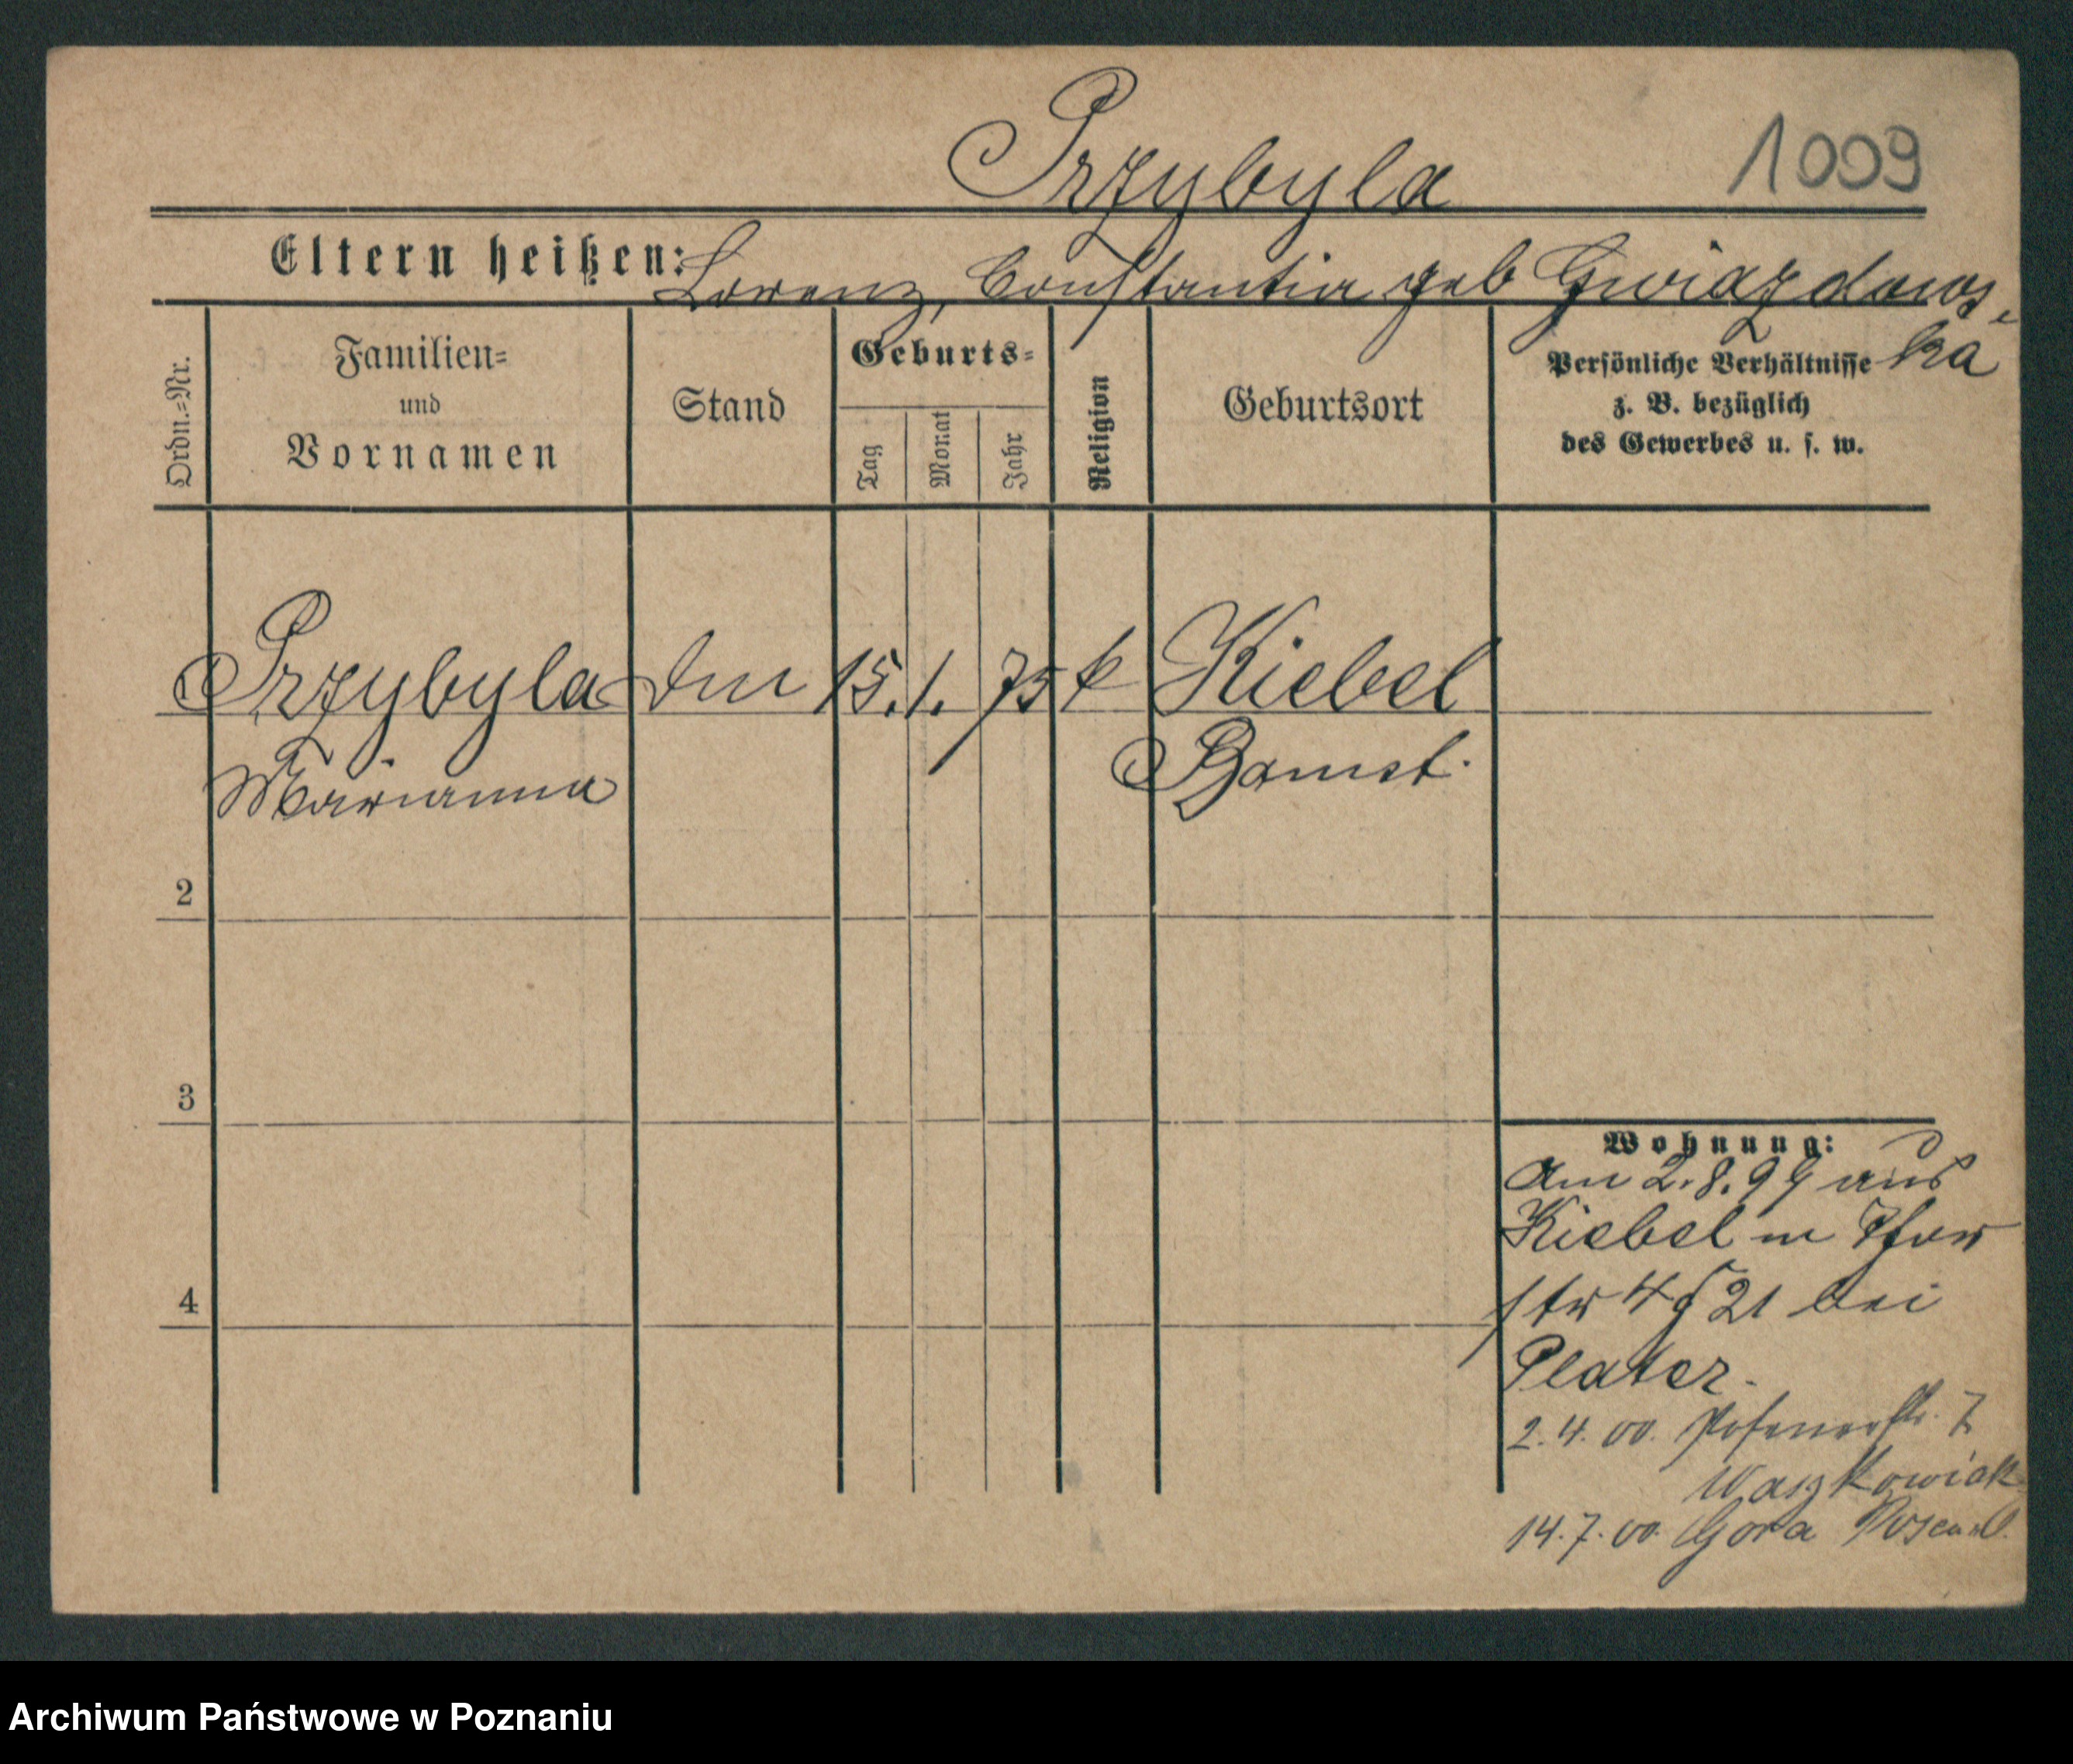 Przybyla 1009
Eltern heißen: Lorenz, Constantia geb Gwiazdows-
ka
Ordn.=Nr.
Familien=
und
Vornamen
Stand
Geburts=
Tag
Monat
Jahr
Religion
Geburtsort
Persönliche Verhältnisse
z. B. bezüglich
des Gewerbes u. s. w.
Przybyla 15. 1. 75 k Kiebel
Marianna Bomst.
2
3
4
Wohnung:
Am 2.8.99 aus
Kiebel n Pfarr
str 4 § 21 bei
Plater.
2.4.00. Posenerstr. 7
Waszkowiak
14.7.00. Gora
Archiwum Państwowe w Poznaniu